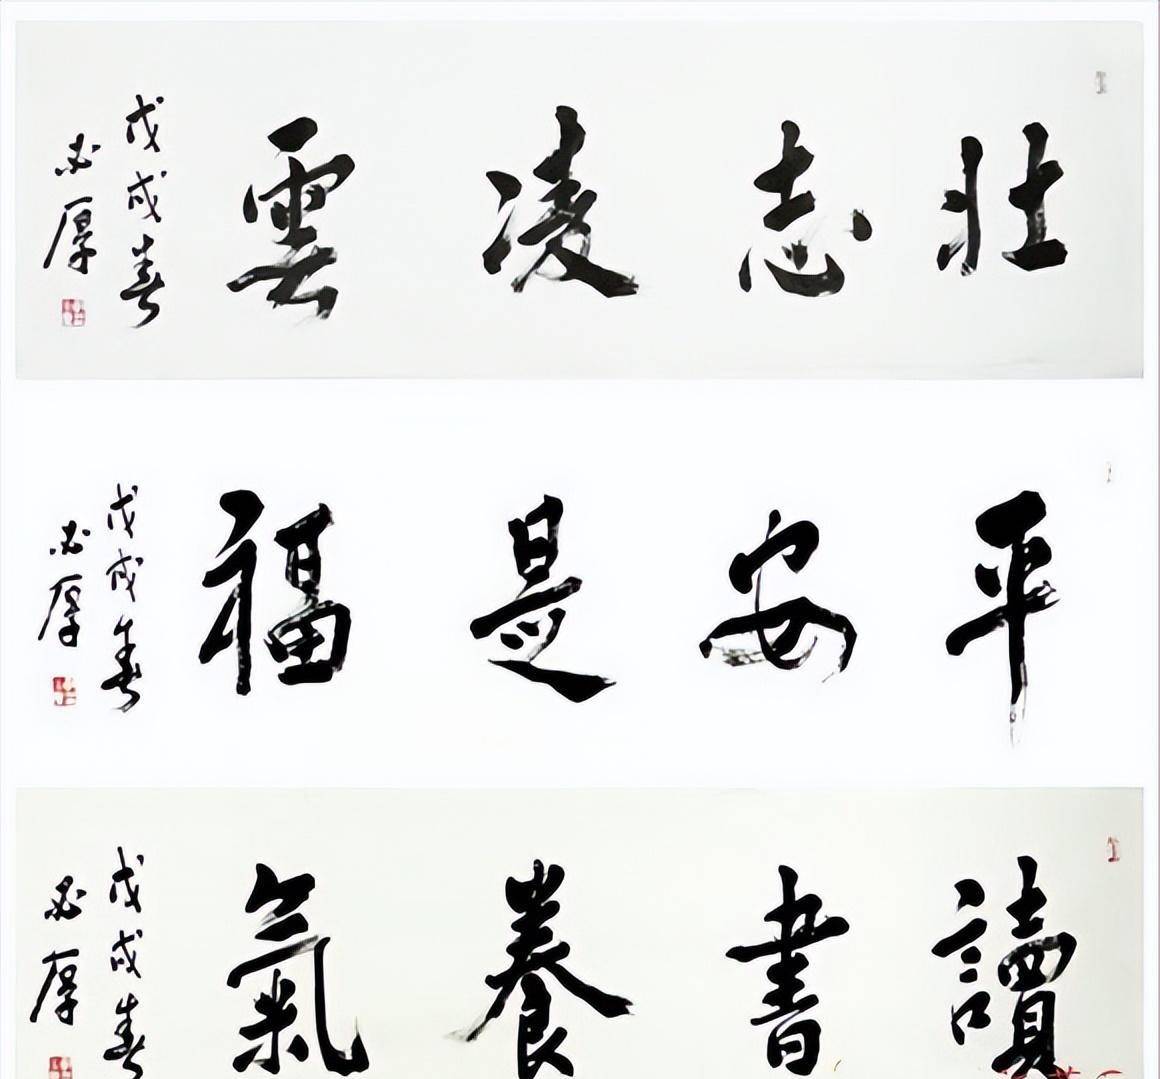 壯志凌雲
戊戌春
必厚
平安是福
戊戌年春
必厚
讀書養氣
戊戌春
必厚